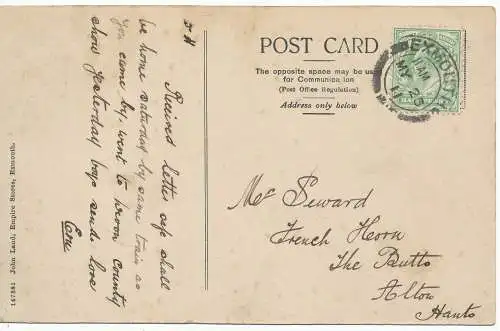 D H
Received letter safe shall
be home saturday by same train as
you came by. went to Devon County
show yesterday boys sends love
POST CARD
The opposite space may be used
for Communication
(Post Office Regulation)
Address only below
EXMOUTH
MY 26
11
Mrs Seward
French Horn
The Butts
Alton
Hants
147381 John Land, Empire Stores, Exmouth.